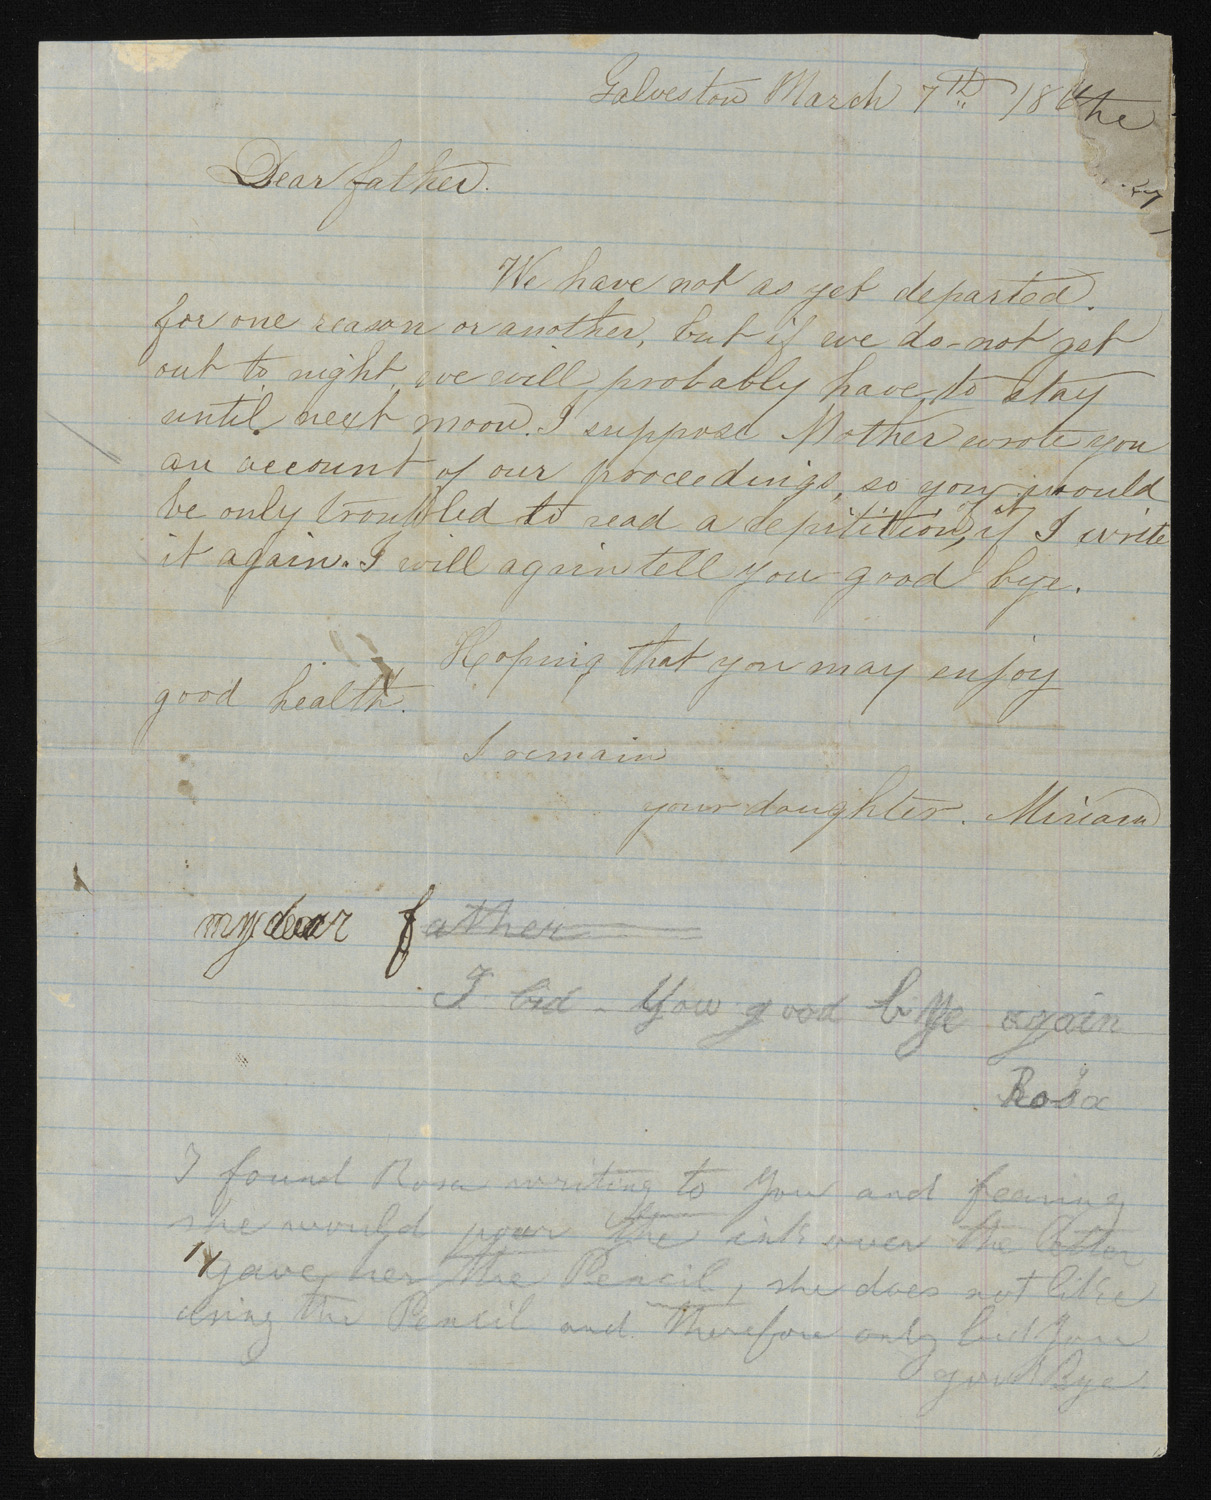 Galveston March 7th 186
the
27
Dear father.
We have not as yet departed.
for one reason or another, but if we do-not get
out to night, we will probably have to stay
until next moon. I suppose Mother wrote you
an account of our proceedings, so you would
be only troubled to read a repitition of it, if I write
it again. I will again tell you good bye.
Hoping that you may enjoy
good health.
I remain
your daughter. Miriam
my dear father
I bid - You good bye again
Rosa
I found Rosa writing to You and fearing
she would pour the ink over the letter
I gave her the Pencil, she does not like
using the Pencil and therefore only bid You
good Bye